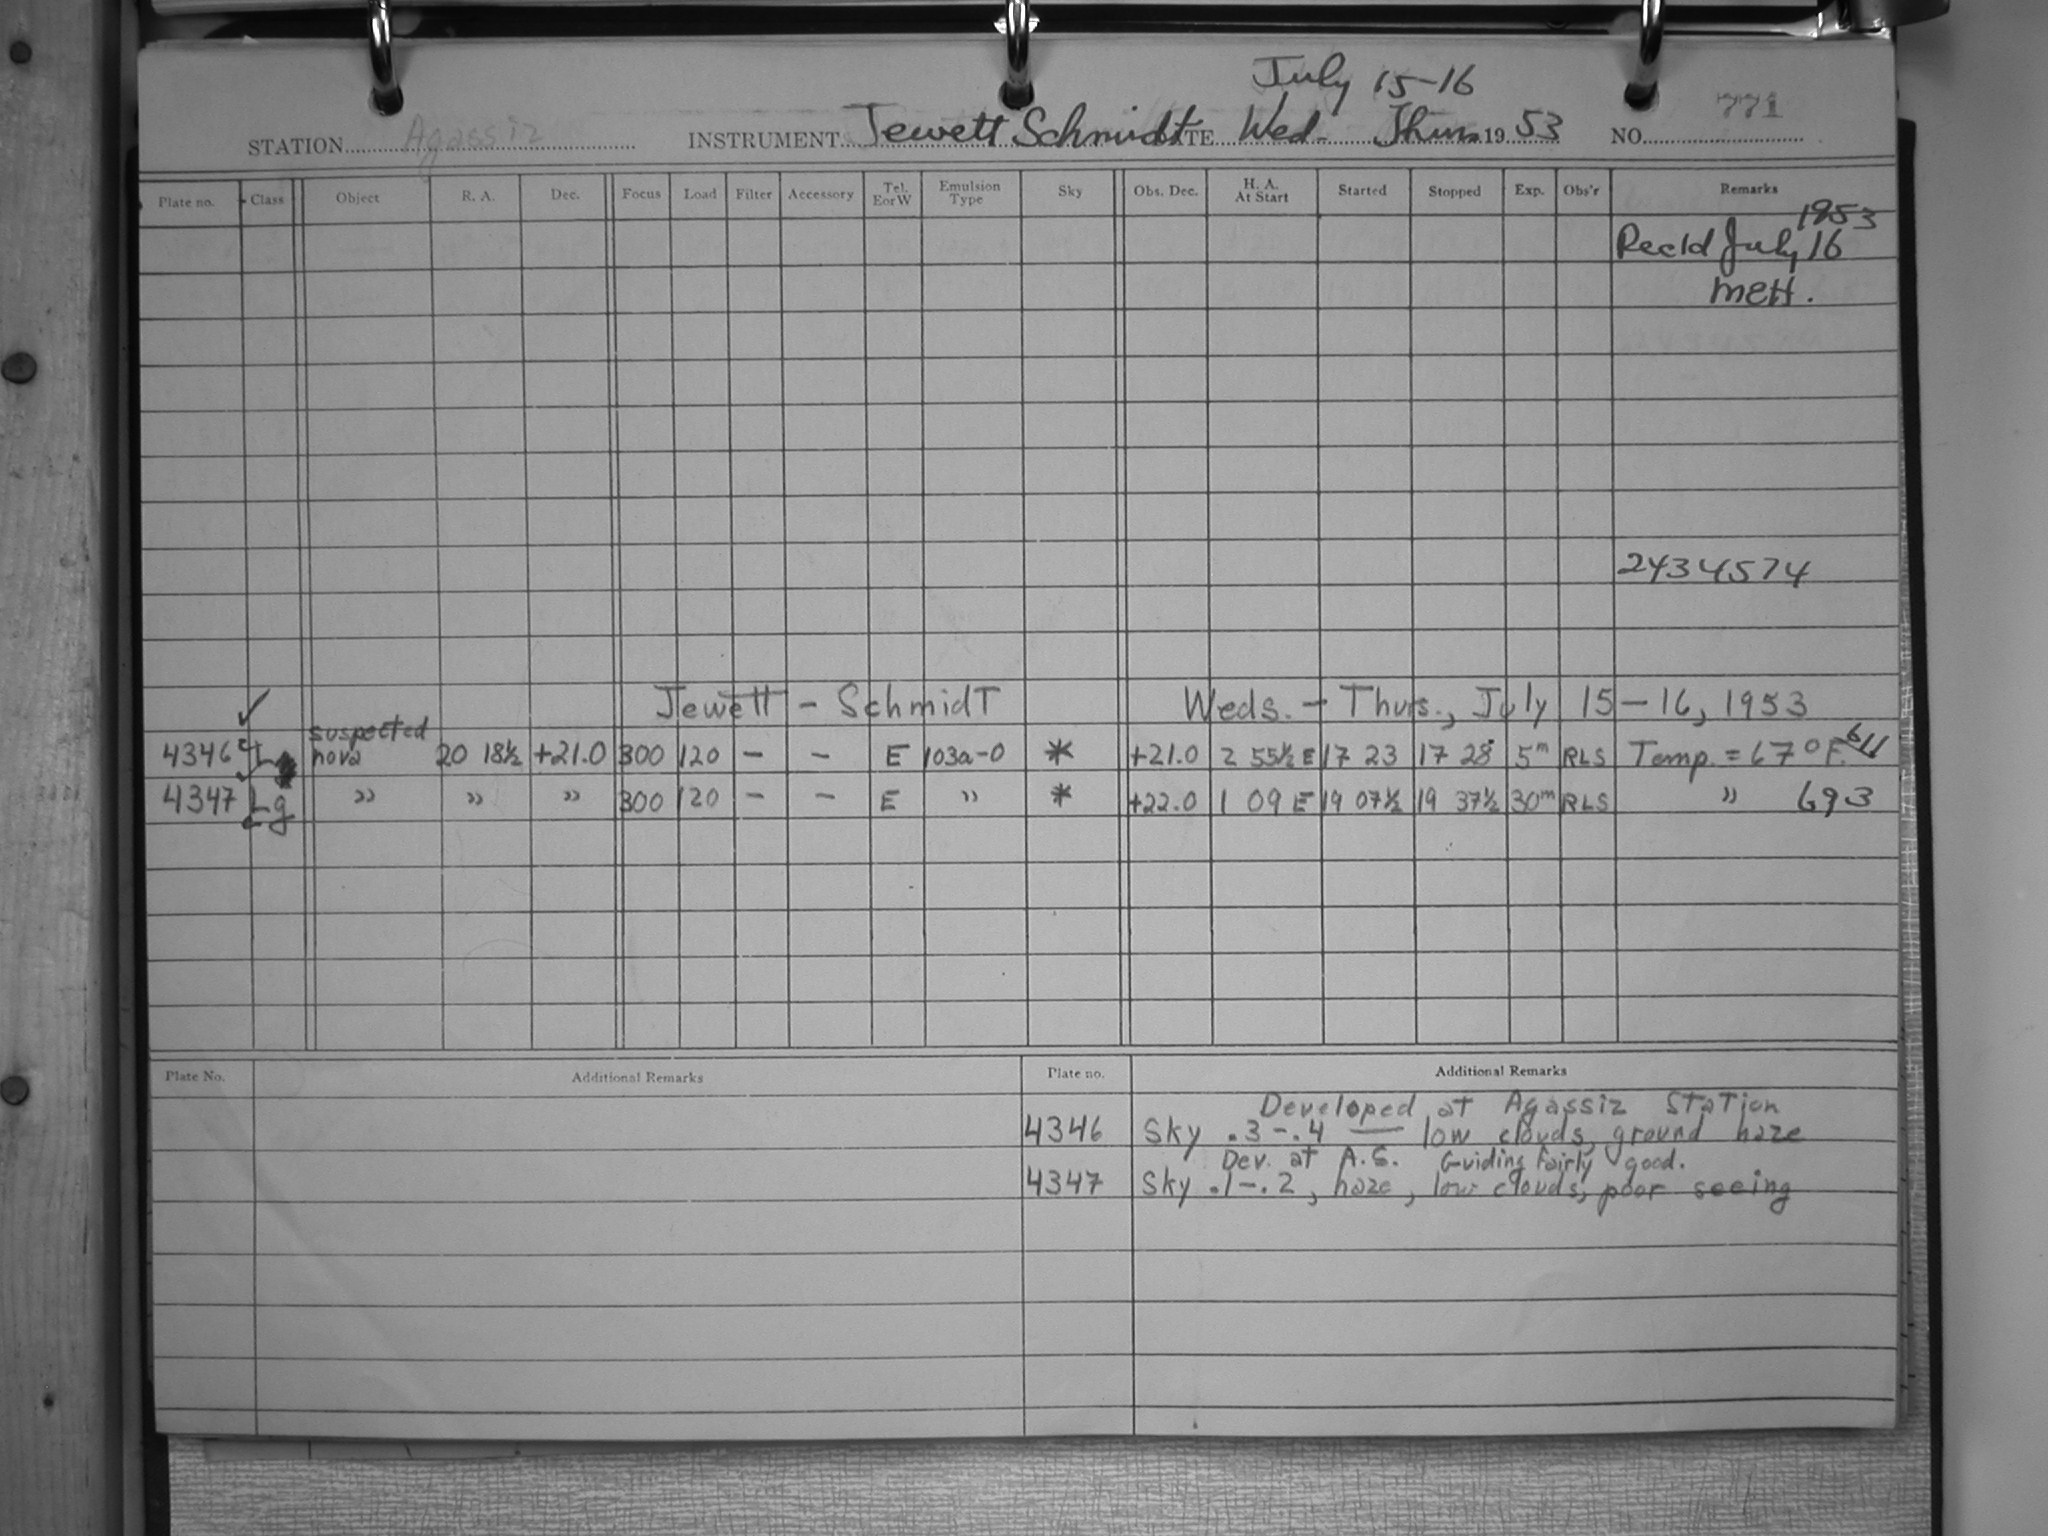 July 15-16
STATION Agassiz INSTRUMENT Jewett Schmidt TE Wed. Thurs 19 53 NO. 771
Plate no. Class Object R. A. Dec. Focus Load Filter Accessory Tel. E or W Emulsion Type Sky Obs. Dec. H. A. At Start Started Stopped Exp. Obs'r Remarks
1953
Rec'd July 16
MEH.
2434574
Jewett - Schmidt Weds. - Thurs., July 15-16, 1953
4346 L suspected nova 20 18½ +21.0 300 120 - - E 103a-O * +21.0 2 55½ E 17 23 17 28 5m RLS Temp. = 67°F. 611
4347 Lg " " " 300 120 - - E " * +22.0 1 09 E 19 07½ 19 37½ 30m RLS " 693
Plate No. Additional Remarks Plate no. Additional Remarks
Developed at Agassiz Station
4346 Sky .3-.4 — low clouds, ground haze
Dev. at A.S. Guiding fairly good.
4347 Sky .1-.2, haze, low clouds, poor seeing